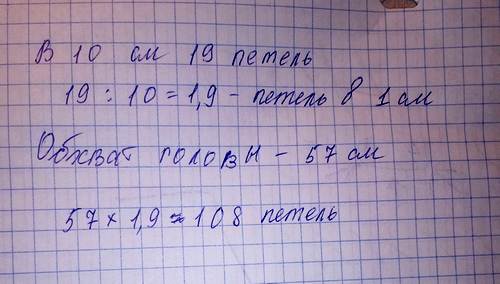 В 10 см 19 петель
19 : 10 = 1,9 - петель в 1 см
Обхват головы - 57 см
57 × 1,9 ≈ 108 петель